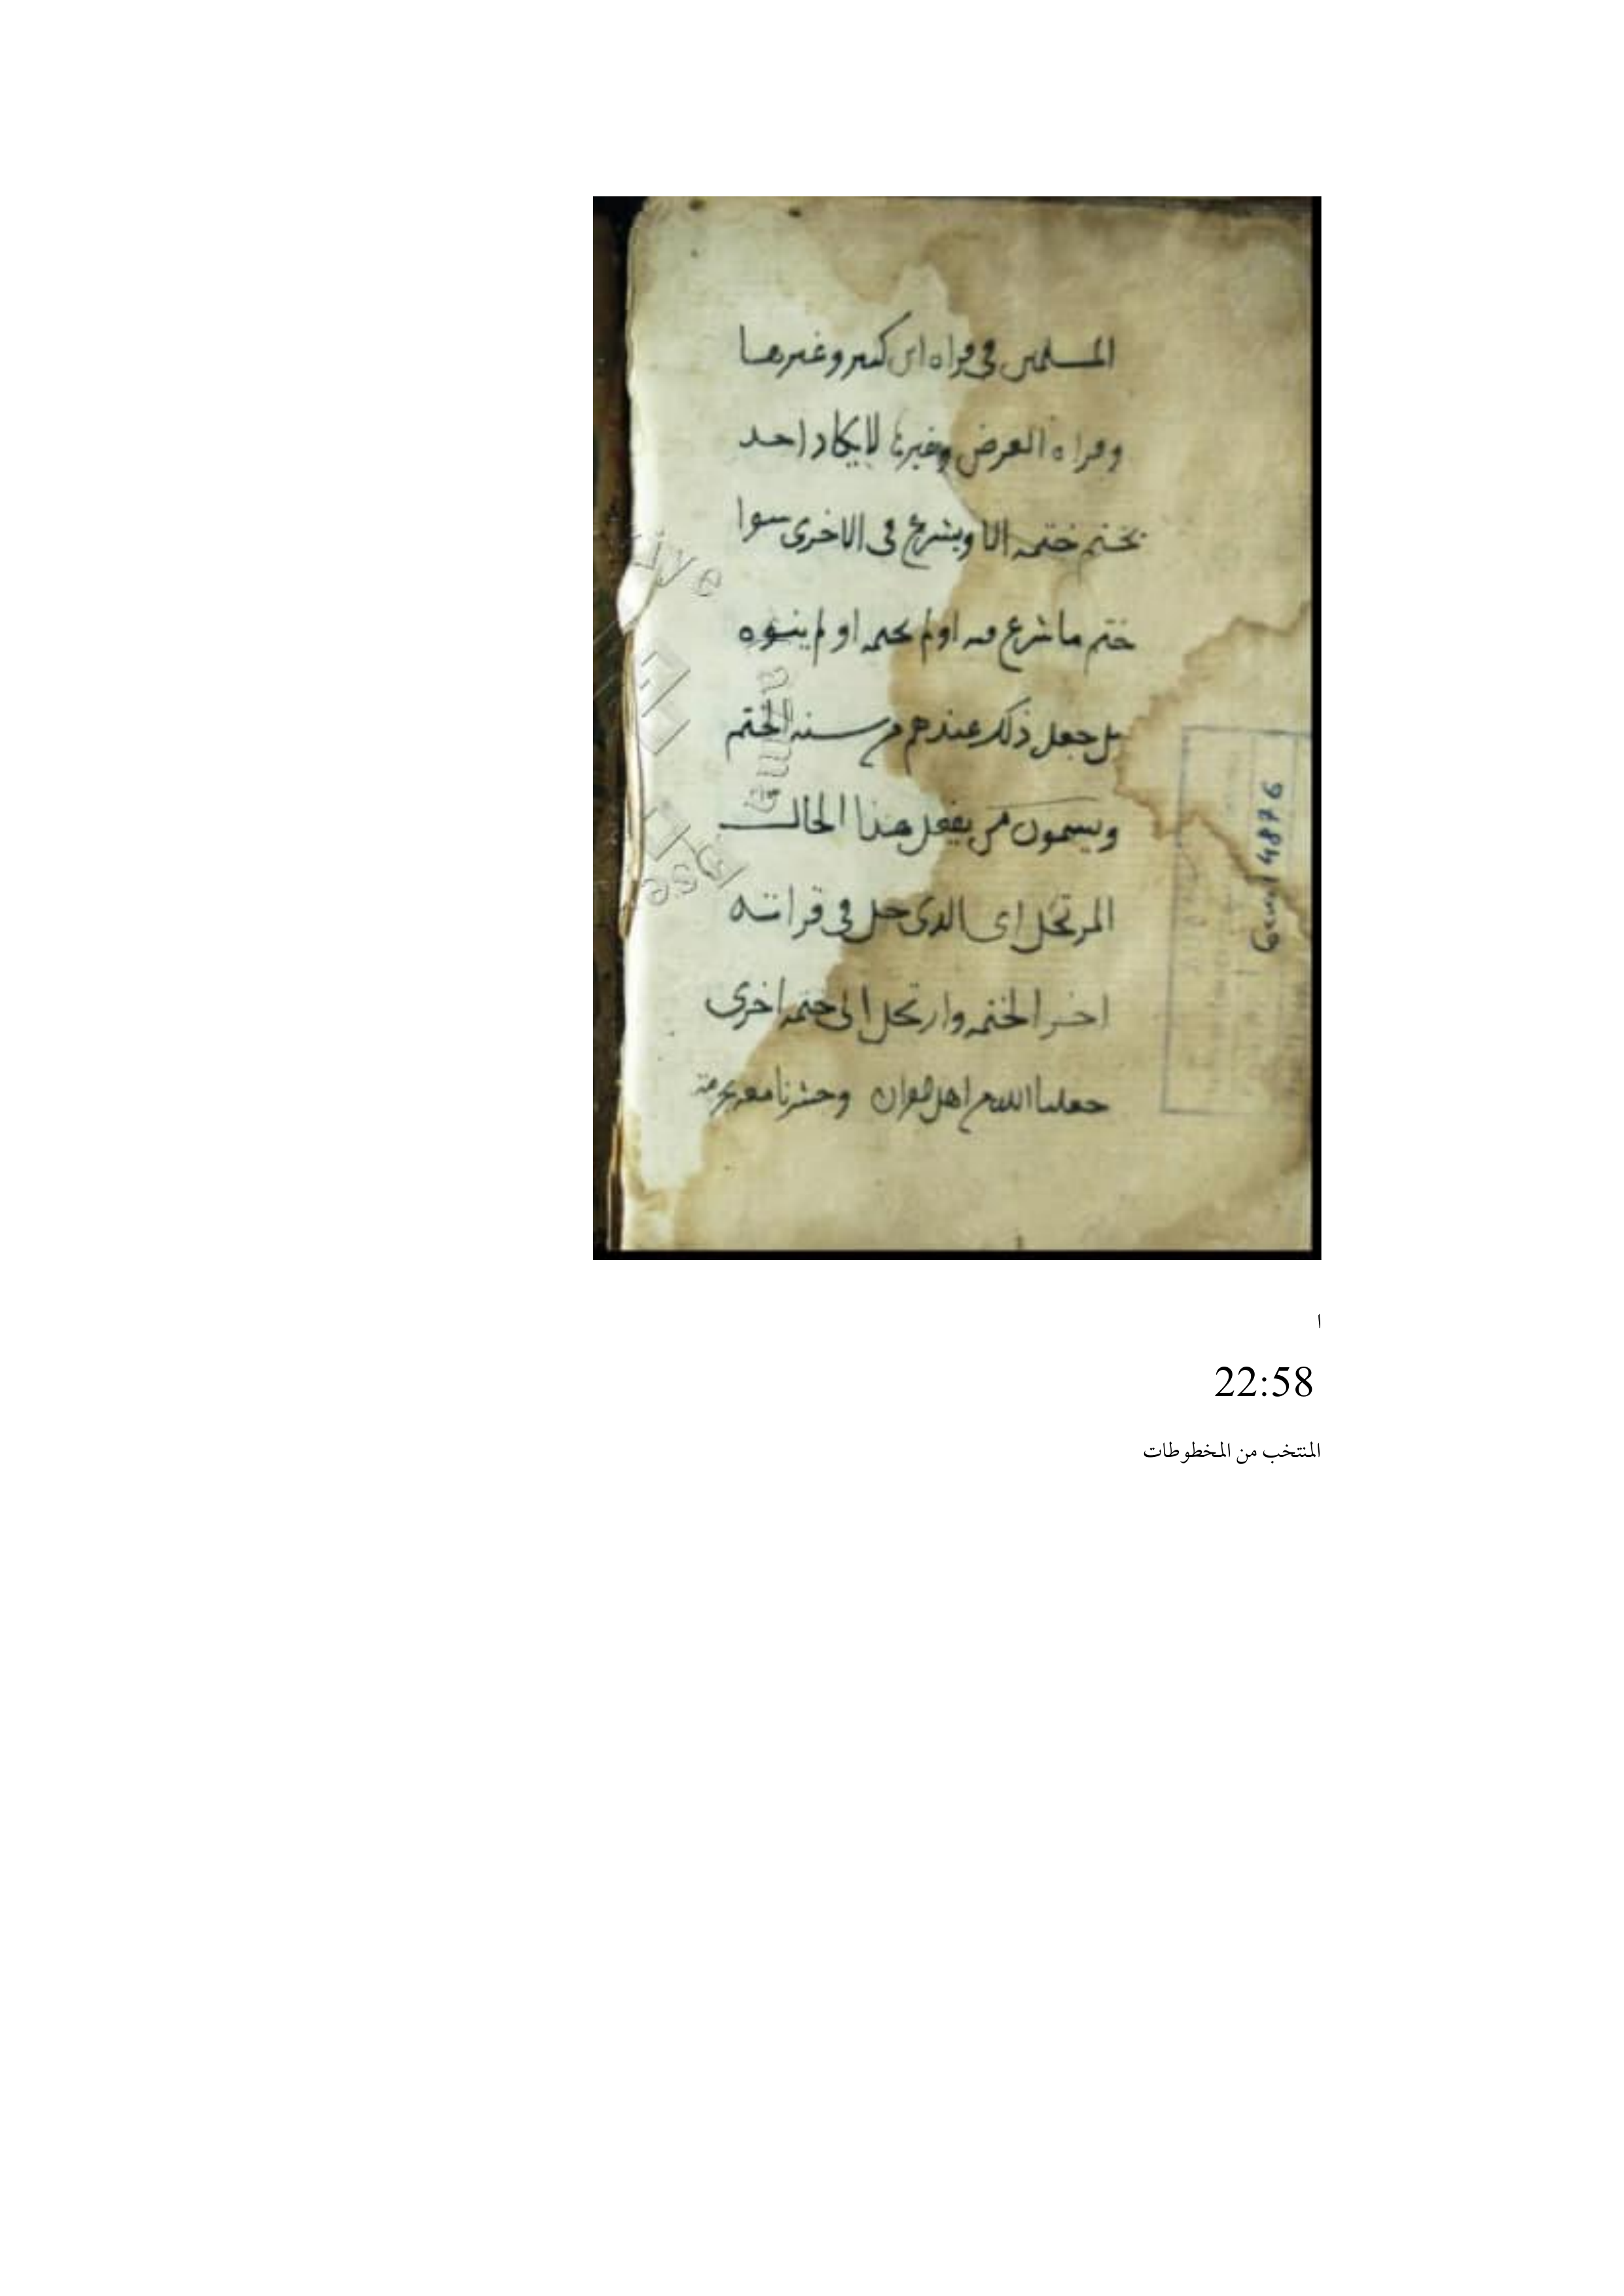 المسلمين في قراه ابن كثير وغيرها
وقراه العرض وغيرها لا يكاد احد
يختم ختمه الا ويشرع في الاخرى سوا
ختم ما شرع فيه او لم يختمه او لم ينوه
بل جعل ذلك عندهم من سنه الختم
ويسمون من يفعل هذا الحال
المرتحل اى الذى حل في قراته
اخر الختمه وارتحل الى ختمه اخرى
جعلنا الله من اهل القران وحشرنا مع
4876
ا
22:58
المنتخب من المخطوطات